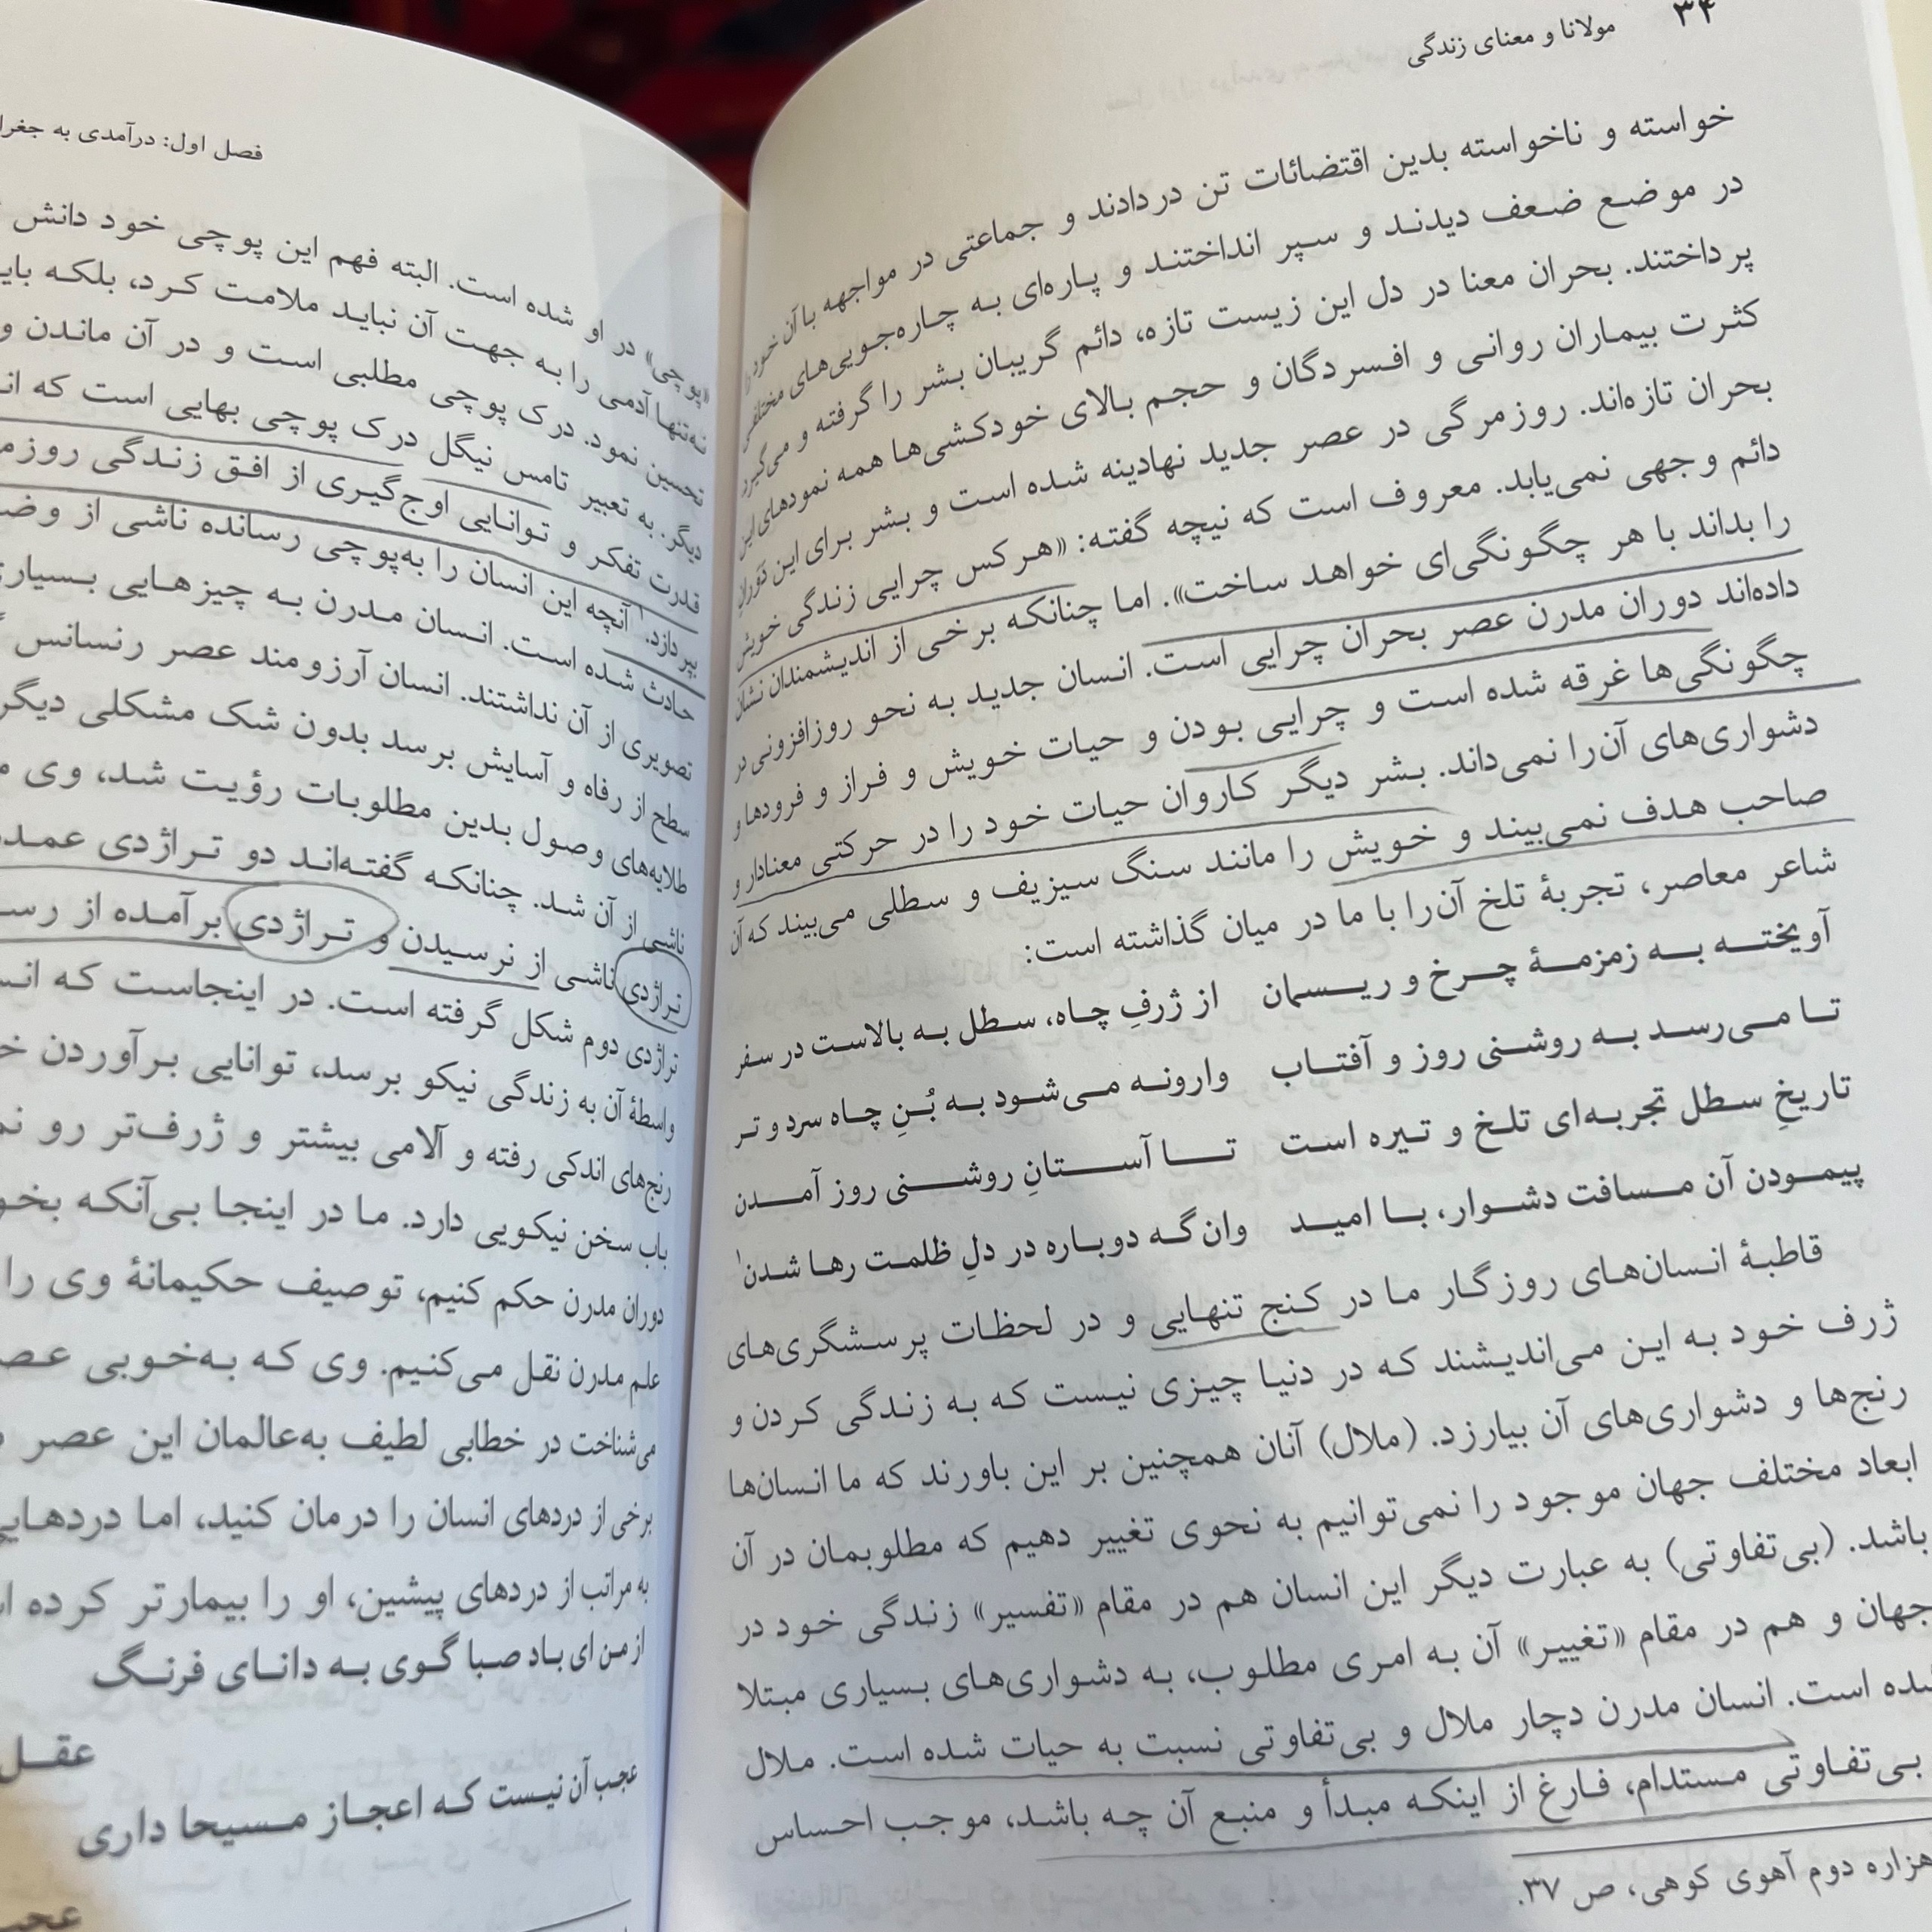 ۳۴
مولانا و معنای زندگی
خواسته و ناخواسته بدین اقتضائات تن دردادند و جماعتی در مواجهه با آن خود را
در موضع ضعف دیدند و سپر انداختند و پاره‌ای به چاره‌جویی‌های مختلفی
پرداختند. بحران معنا در دل این زیست تازه، دائم گریبان بشر را گرفته و می‌گیرد
کثرت بیماران روانی و افسردگان و حجم بالای خودکشی‌ها همه نمودهای این
بحران تازه‌اند. روزمرگی در عصر جدید نهادینه شده است و بشر برای این دَوَرانِ
دائم وجهی نمی‌یابد. معروف است که نیچه گفته: «هرکس چرایی زندگی خویش
را بداند با هر چگونگی‌ای خواهد ساخت». اما چنانکه برخی از اندیشمندان نشان
داده‌اند دوران مدرن عصر بحران چرایی است. انسان جدید به نحو روزافزونی در
چگونگی‌ها غرقه شده است و چرایی بودن و حیات خویش و فراز و فرودها و
دشواری‌های آن‌را نمی‌داند. بشر دیگر کاروان حیات خود را در حرکتی معنادار و
صاحب هدف نمی‌بیند و خویش را مانند سنگ سیزیف و سطلی می‌بیند که آن
شاعر معاصر، تجربهٔ تلخ آن‌را با ما در میان گذاشته است:
آویخته به زمزمهٔ چرخ و ریسمان از ژرفِ چاه، سطل به بالاست در سفر
تا می‌رسد به روشنی روز و آفتاب وارونه می‌شود به بُنِ چاه سرد و تر
تاریخِ سطل تجربه‌ای تلخ و تیره است تا آستانِ روشنی روز آمدن
پیمودن آن مسافت دشوار، با امید وان‌گه دوباره در دلِ ظلمت رها شدن۱
قاطبهٔ انسان‌های روزگار ما در کنج تنهایی و در لحظات پرسشگری‌های
ژرف خود به این می‌اندیشند که در دنیا چیزی نیست که به زندگی کردن و
رنج‌ها و دشواری‌های آن بیارزد. (ملال) آنان همچنین بر این باورند که ما انسان‌ها
ابعاد مختلف جهان موجود را نمی‌توانیم به نحوی تغییر دهیم که مطلوبمان در آن
باشد. (بی‌تفاوتی) به عبارت دیگر این انسان هم در مقام «تفسیر» زندگی خود در
جهان و هم در مقام «تغییر» آن به امری مطلوب، به دشواری‌های بسیاری مبتلا
شده است. انسان مدرن دچار ملال و بی‌تفاوتی نسبت به حیات شده است. ملال
بی‌تفاوتی مستدام، فارغ از اینکه مبدأ و منبع آن چه باشد، موجب احساس
هزاره دوم آهوی کوهی، ص ۳۷.
فصل اول: درآمدی به
«پوچی» در او شده است. البته فهم این پوچی خود دانش
نه‌تنها آدمی را به جهت آن نباید ملامت کرد، بلکه
تحسین نمود. درک پوچی مطلبی است و در آن ماندن و
دیگر. به تعبیر تامس نیگل درک پوچی بهایی است که
قدرت تفکر و توانایی اوج‌گیری از افق زندگی
بپردازد.۱ آنچه این انسان را به‌پوچی رسانده ناشی از
حادث شده است. انسان مدرن به چیزهایی
تصویری از آن نداشتند. انسان آرزومند عصر رنسانس
سطح از رفاه و آسایش برسد بدون شک مشکلی
طلایه‌های وصول بدین مطلوبات رؤیت شد، وی
ناشی از آن شد. چنانکه گفته‌اند دو تراژدی
تراژدی ناشی از نرسیدن و تراژدی برآمده از
تراژدی دوم شکل گرفته است. در اینجاست که
واسطهٔ آن به زندگی نیکو برسد، توانایی برآوردن
رنج‌های اندکی رفته و آلامی بیشتر و ژرف‌تر رو
باب سخن نیکویی دارد. ما در اینجا بی‌آنکه
دوران مدرن حکم کنیم، توصیف حکیمانهٔ وی را
علم مدرن نقل می‌کنیم. وی که به‌خوبی
می‌شناخت در خطابی لطیف به‌عالمان این عصر
برخی از دردهای انسان را درمان کنید، اما
به مراتب از دردهای پیشین، او را بیمارتر کرده
از من ای باد صبا گوی به دانای فرنگ
عجب آن نیست که اعجاز مسیحا داری